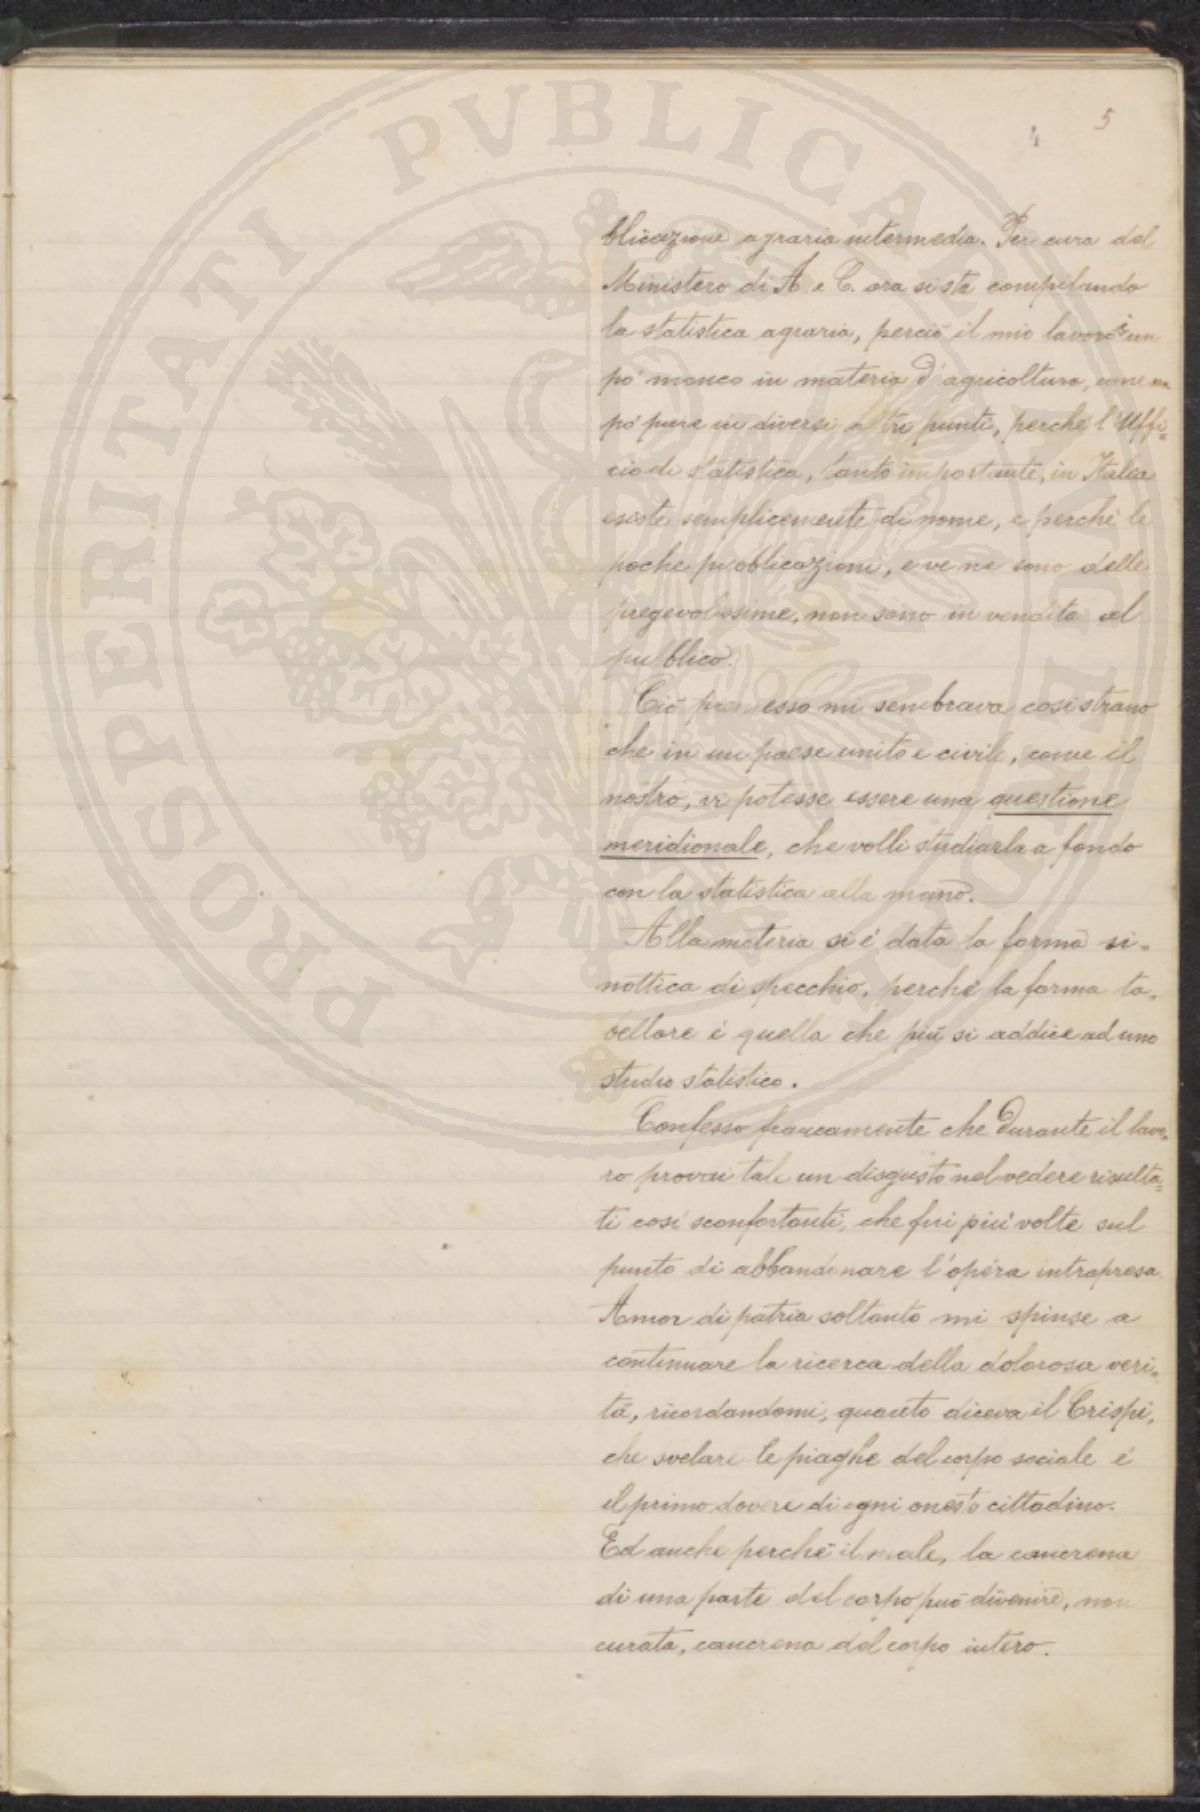 PROSPERITATI PVBLICAE
4
5
blicazione agraria intermedia. Per cura del
Ministero di A. e C. ora si sta compilando
la statistica agraria, perciò il mio lavoro è un
pó monco in materia d'agricoltura, come un
pó pure in diversi altri punti, perché l'Uffi=
cio di statistica, tanto importante, in Italia
esiste semplicemente di nome, e perché le
poche pubblicazioni, e ve ne sono delle
pregevolissime, non sono in vendita al
pubblico.
Ciò premesso mi sembrava cosí strano
che in un paese unito e civile, come il
nostro, vi potesse essere una questione
meridionale, che volli studiarla a fondo
con la statistica alla mano.
Alla materia si é data la forma si=
nottica di specchio, perché la forma ta=
bellare é quella che piú si addice ad uno
studio statistico.
Confesso francamente che durante il lavo=
ro provai tale un disgusto nel vedere risulta=
ti cosí sconfortanti, che fui piú volte sul
punto di abbandonare l'opera intrapresa.
Amor di patria soltanto mi spinse a
continuare la ricerca della dolorosa veri=
tá, ricordandomi, quanto diceva il Crispi,
che svelare le piaghe del corpo sociale é
il primo dovere di ogni onesto cittadino.
Ed anche perché il male, la cancrena
di una parte del corpo puó divenire, non
curata, cancrena del corpo intero.